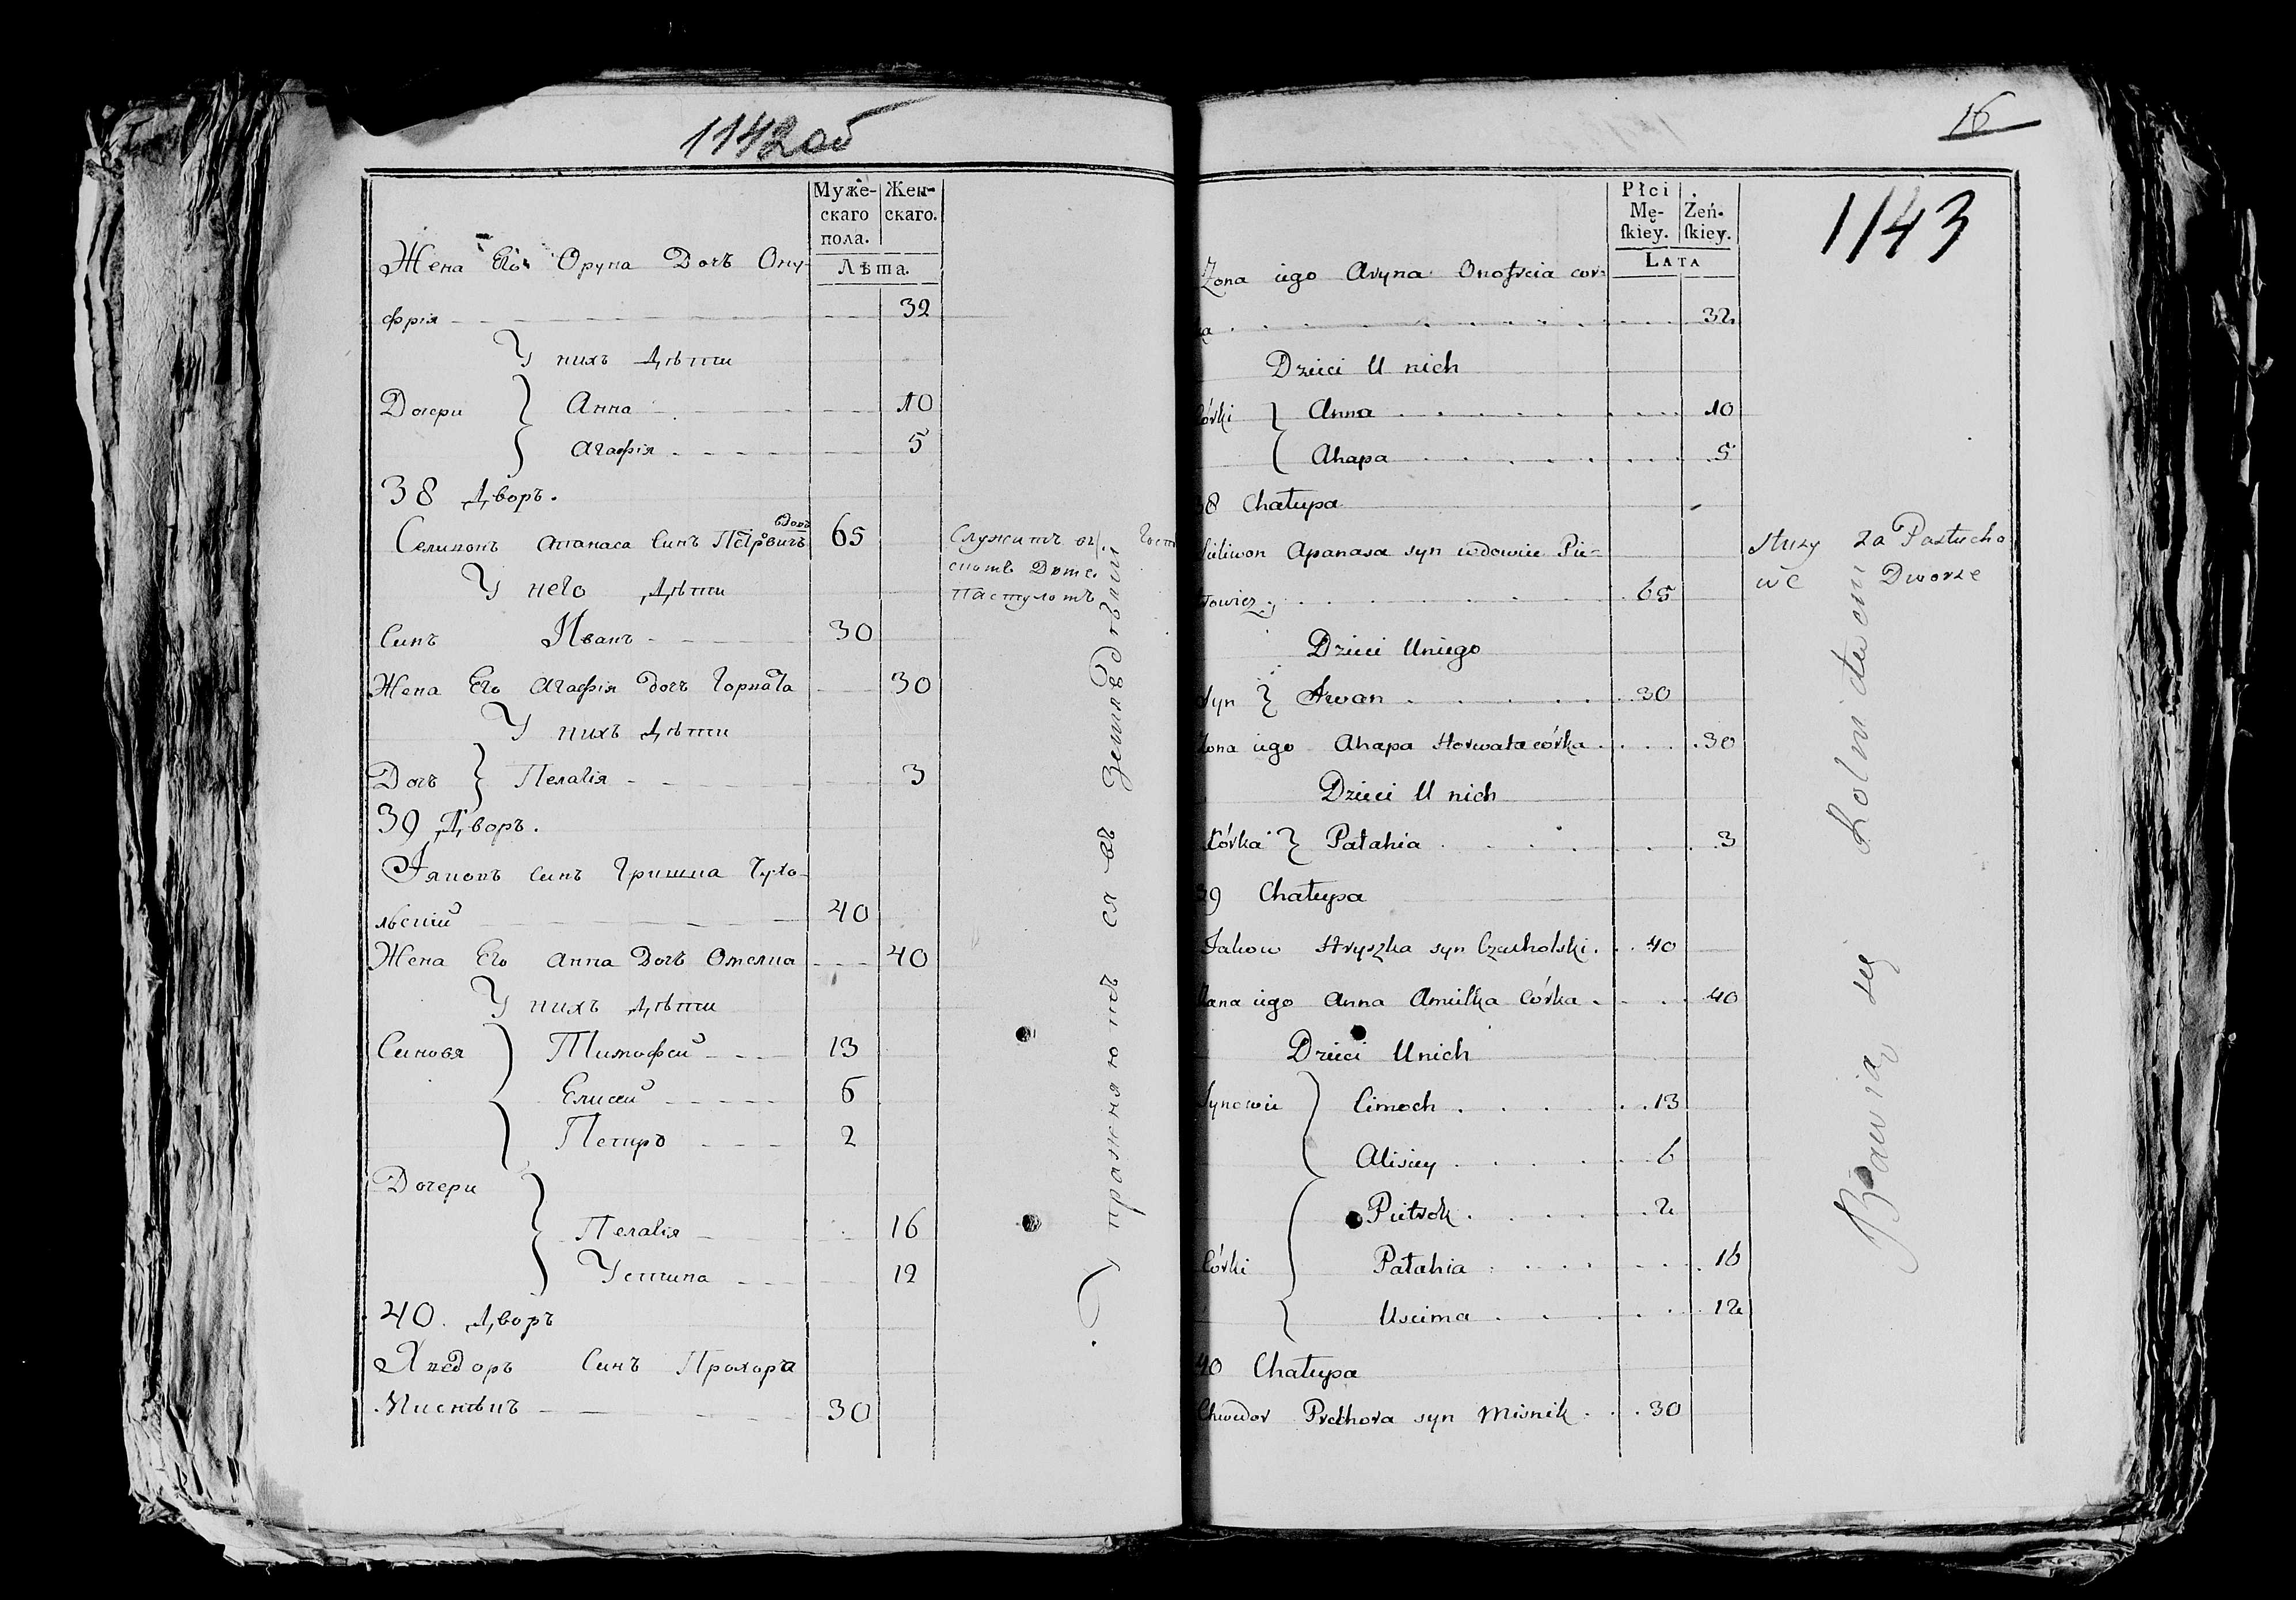 1142об
Муже- Жен-
скаго скаго.
пола.
Лѣта.
Жена Его Орупа Дочъ Ону-
фрія 32
У нихъ Дѣти
Дочери Анна 10
Агафія 5
38 Дворъ.
вдовъ
Селивонъ Апанаса Синъ Петровичъ 65
Служитъ
Пастухомъ
У него Дѣти
Синъ Иванъ 30
Жена Его Агафія дочъ 30
У нихъ Дѣти
Дочъ Пелагія 3
39 Дворъ.
Яковъ синъ Гришка Чухо-
льскій 40
Жена Его Анна Дочъ Омелка 40
У нихъ Дѣти
Синовя Тимофей 13
Елисей 6
Петръ 2
Дочери
Пелагія 16
Устина 12
40. Дворъ
Хведоръ Синъ Прохора
Миснікъ 30
Упражняются въ Земледѣліи
16
1143
Płci
Mę- Żeń-
ſkiey. ſkiey.
LATA
Zona iego Aryna Onofreia cór=
ka 32
Dzieci U nich
Córki Anna 10
Ahapa 5
38 Chałupa
Sieliwon Apanasa syn wdowiec Pie=
trowicz 65
służy za Pastucha
we Dworze
Dzieci Uniego
Syn Iwan 30
Zona iego Ahapa Horwata córka 30
Dzieci U nich
Córka Pałahia 3
39 Chałupa
Jakow Hryszka syn Czucholski 40
Zana iego Anna Amielka Córka 40
Dzieci Unich
Synowie Cimoch 13
Alisiey 6
Pietrok 2
Córki Pałahia 16
Uscima 12
40 Chałupa
Chwedor Prochora syn Misnik 30
Bawią się Rolnictwem